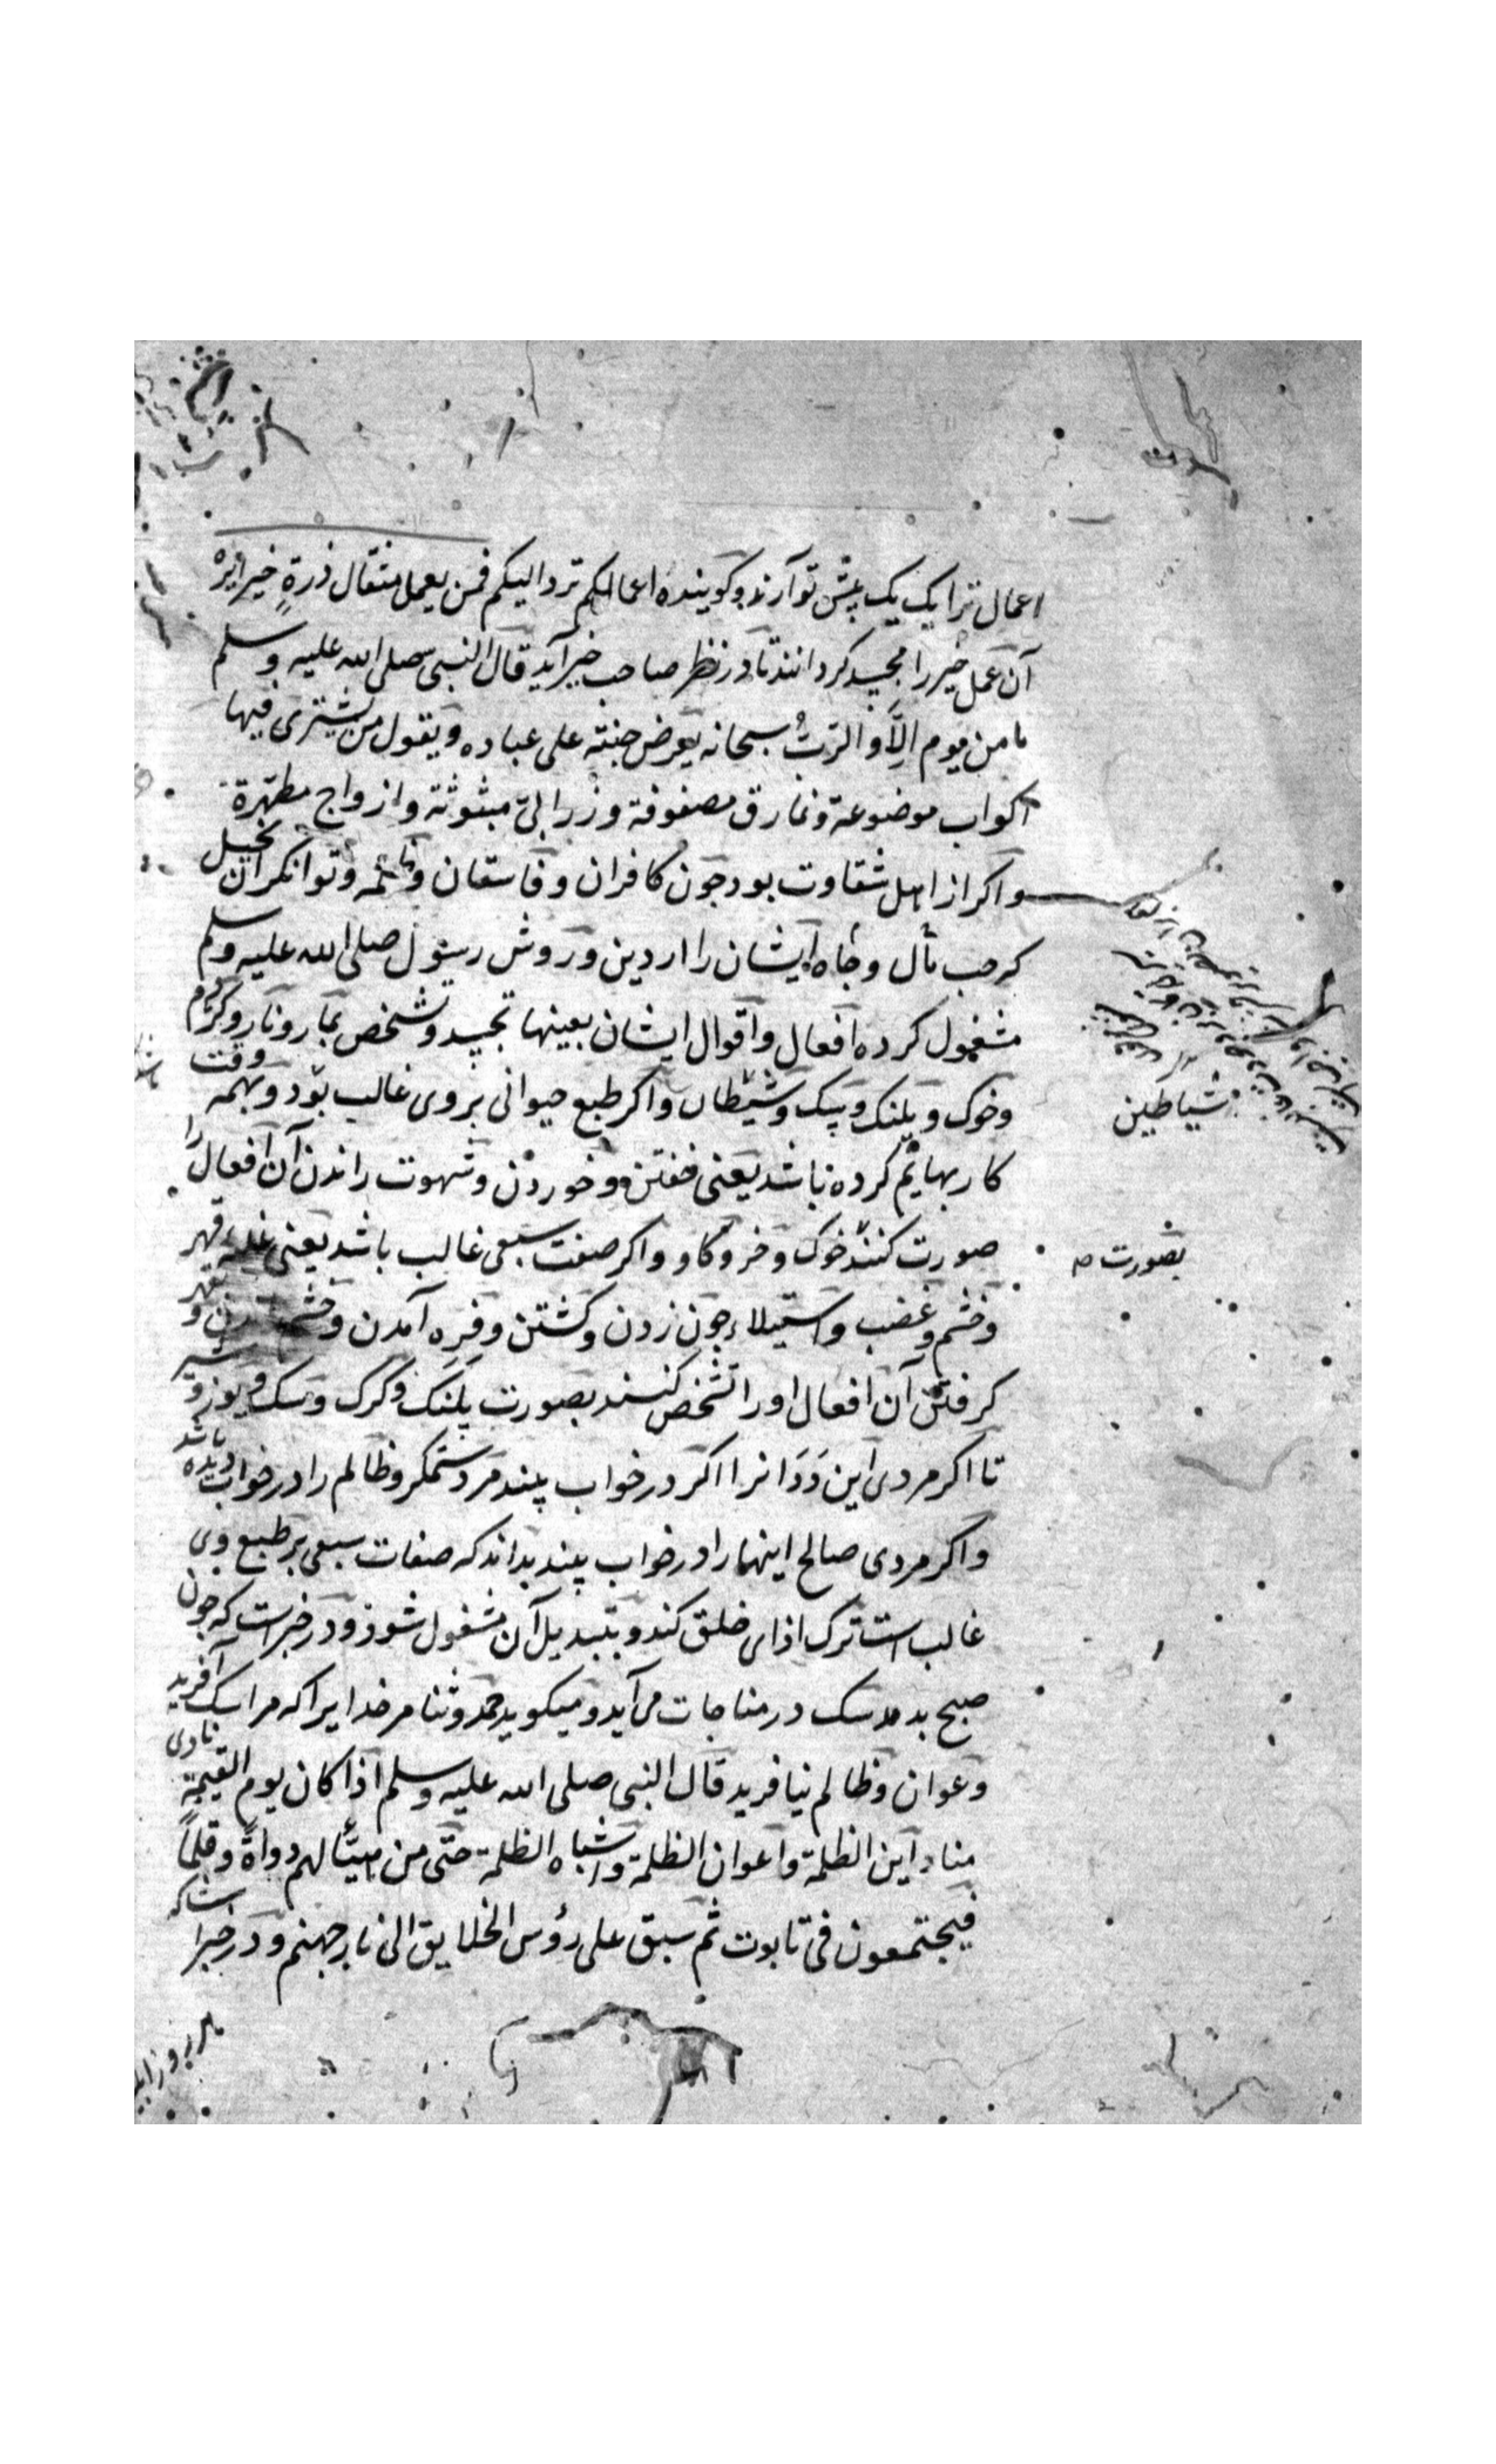 اعمال ترا یک یک پیش تو آرند و کویند ه اعمالکم ترد الیکم فمن یعمل مثقال ذرةٍ خیرا یره
آن عمل خیر را مجسد کردانند تا در نظر صاحب خیر آید قال النبی صلی الله علیه وسلم
ما من یوم الّا و الرّبُ سبحانه یعرض جنته علی عباده و یقول من یشتری فیها
اکواب موضوعة و نمارق مصفوفة و زرابیّ مبثوثة و ازواج مطهّرة
و اکر از اهل شقاوت بود جون کافران و فاسقان و ظلمه و توانکران بخیل
که حب مال و جاه ایشان را از دین و روش رسول صلی الله علیه وسلم
مشغول کرده افعال و اقوال ایشان بعینها تجسد و تشخص بمار و نار و کژدم
و خوک و پلنک و پیک و شیطان و اکر طبع حیوانی بر وی غالب بود و همه وقت
کار بهایم کرده باشد یعنی خفتن و خوردن و شهوت راندن آن افعال را
صورت کنند خوک و خر و کاو و اکر صفت سبعی غالب باشد یعنی غلبه قهر
و خشم و غضب و استیلاء جون زدن و کشتن و فره آمدن و
کرفتن آن افعال او را تشخص کنند بصورت پلنک و کرک و سک و یوز و شیر
تا اکر مردی این دَدَانرا اکر در خواب بیند مرد ستمکر و ظالم را در خواب دیده باشد
و اکر مردی صالح اینها را در خواب بیند بداند که صفات سبعی بر طبع وی
غالب است ترک اذای خلق کند و بتبدیل آن مشغول شود و در خبرست که جون
صبح بدمد سک در مناجات می آید و میکوید حمد و ثنا مر خدایرا که مرا سک آفرید
و عوان و ظالم نیافرید قال النبی صلی الله علیه وسلم اذا کان یوم القیمة نادی
مناد این الظلمة و اعوان الظلمة و اشباه الظلمة حتی من هیّأ لهم دواة و قلماً
فیجتمعون فی تابوت ثم سبق علی رؤس الخلایق الی نار جهنم و در خبر است که
شیاطین
بصورت صح